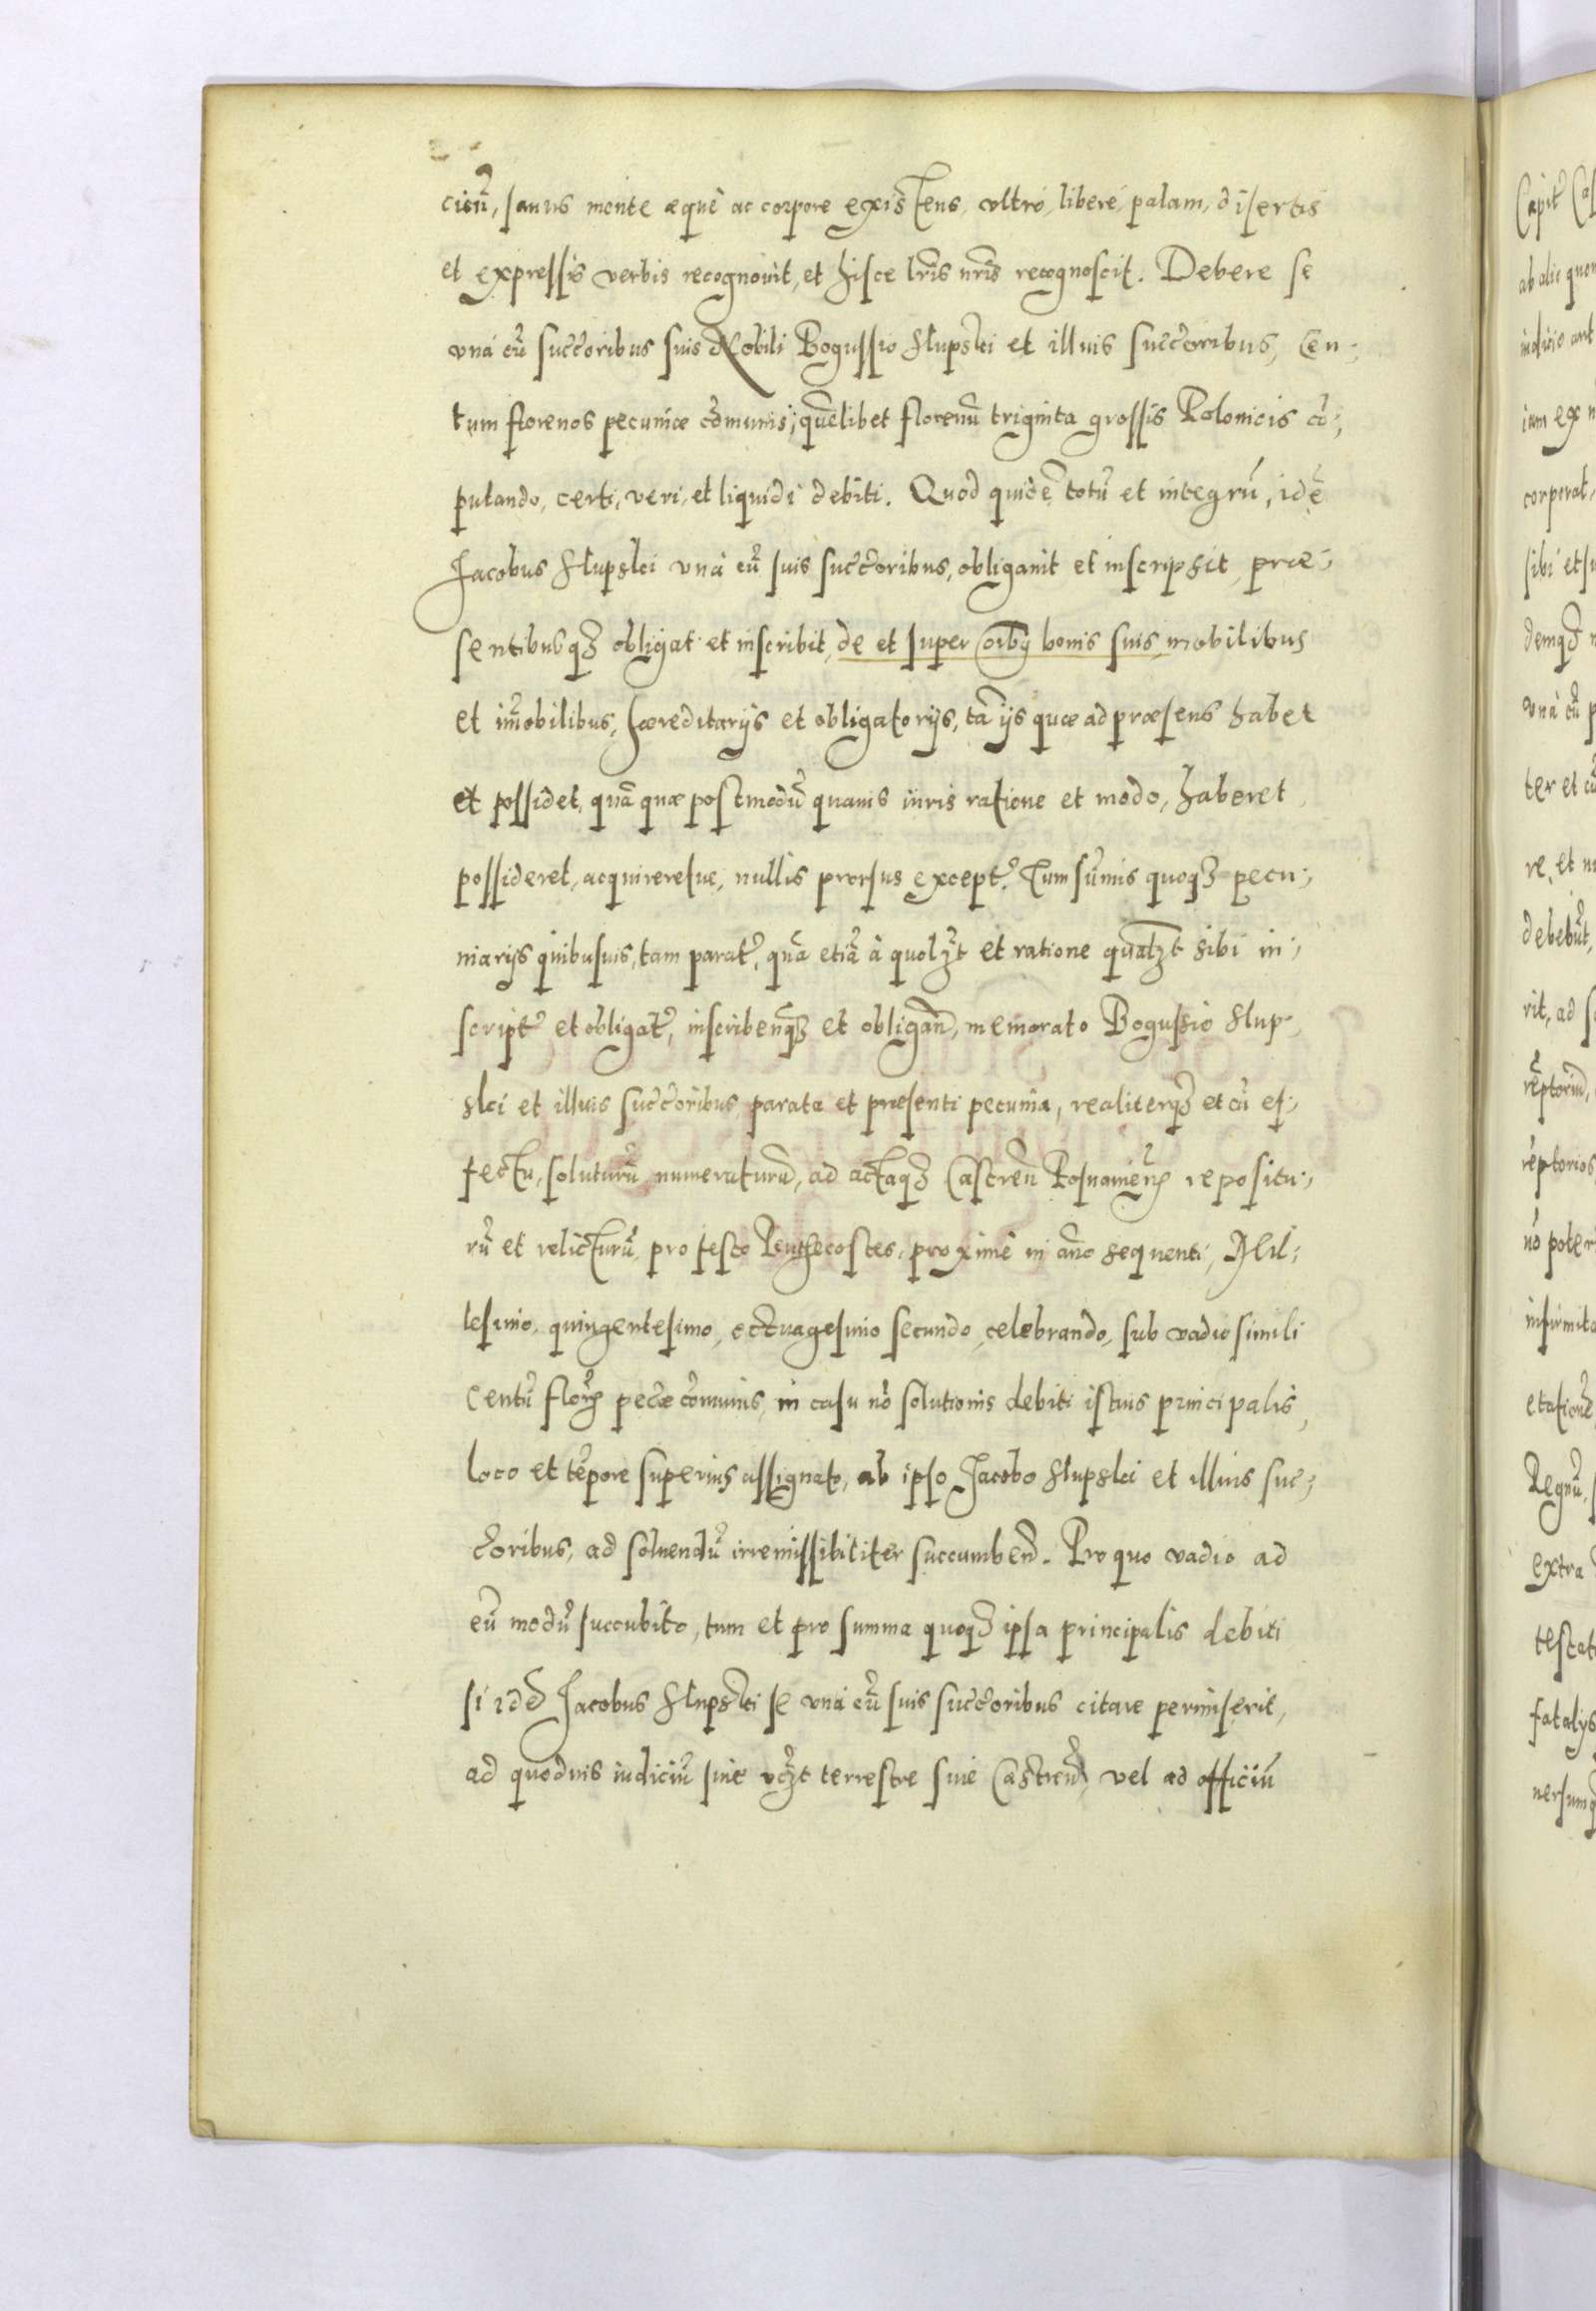 ciũ, sanus mente æquè ac corpore existens, vltrò, liberè, palam, disertis
et expressis verbis recognouit, et hisce lr̃is nr̃is recognoscit. Debere se
vnà cũ succ̃oribus suis Nobili Bogussio Slupski et illius succ̃oribus, Cen⸗
tum florenos pecuniæ cõmunis, quẽlibet florenũ triginta grossis Polonicis cõ⸗
putando, certi, veri, et liquidi debiti. Quod quidẽ totũ et integrũ, idẽ
Jacobus Slupski vnà cũ suis succ̃oribus, obligauit et inscripsit, præ⸗
sentibusqȝ obligat et inscribit, de et super oĩbꝯ bonis suis mobilibus
et im̃obilibus, hæreditarijs et obligatorijs, tã ijs quæ ad præsens habet
et possidet, quã quæ postmodũ quauis iuris ratione et modo, haberet
possideret, acquireretue, nullis prorsus except̃. Tum sum̃is quoqȝ pecu⸗
niarijs quibusuis, tam parat̃, quã etiã à quolȝt et ratione qualȝt sibi in⸗
script̃ et obligat̃, inscribenqȝ et obligañ, memorato Bogussio Slup⸗
ski et illius succ̃oribus, parata et præsenti pecunia, realiterqȝ et cũ ef⸗
fectu, soluturũ, numeraturũ, ad actaqȝ Castreñ Posnanieñ repositu⸗
rũ et relicturũ, pro festo Penthecostes, proximè in año sequenti, Mil⸗
lesimo, quingentesimo, octuagesimo secundo, celebrando, sub vadio simili
Centũ floꝝ pec̃æ cõmunis, in casu nõ solutionis debiti istius principalis,
loco et tẽpore superius assignato, ab ipso Jacobo Slupski et illius suc⸗
c̃oribus, ad soluendũ irremissibiliter succumbeñ. Pro quo vadio ad
eũ modũ succubito, tum et pro summa quoqȝ ipsa principalis debiti
si idẽ Jacobus Slupski se vnà cũ suis succ̃oribus citare permiserit,
ad quoduis iudiciũ siue vȝt terrestre siue Castreñ, vel ad officiũ